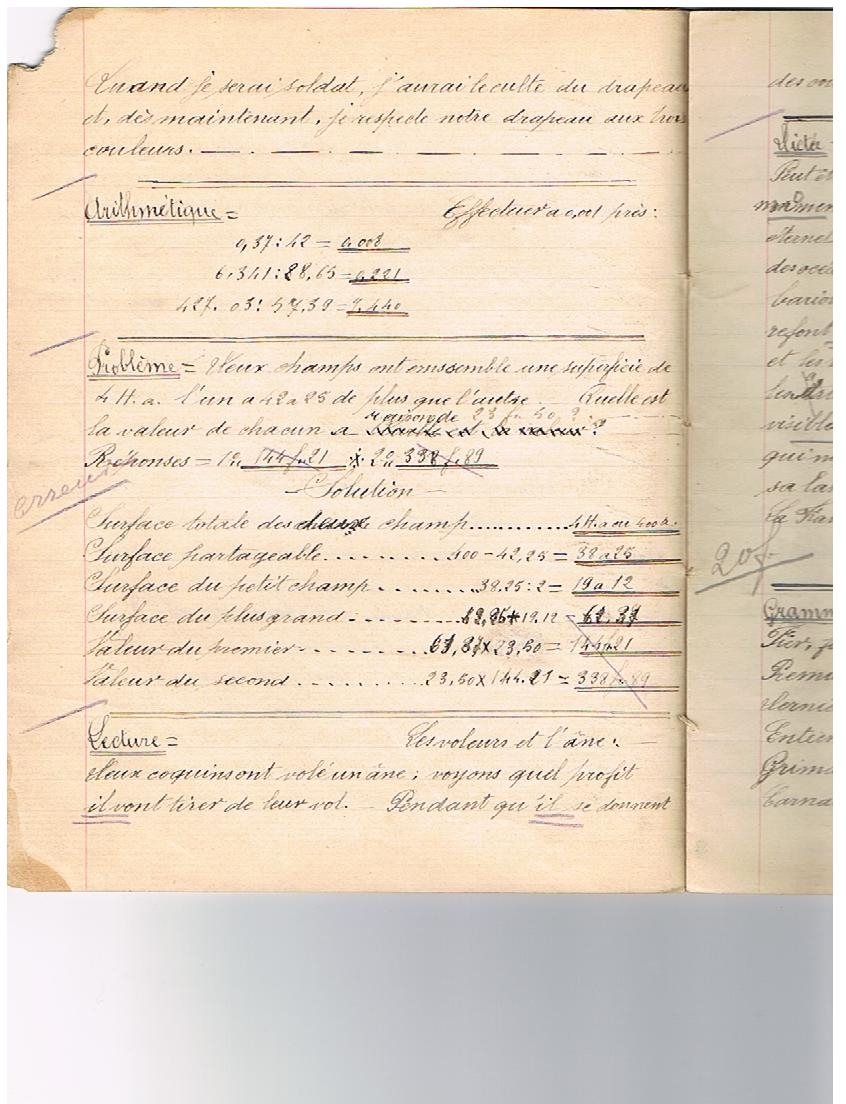 Quand je serai soldat, j'aurai le culte du drapeau
et, dès maintenant, je respecte notre drapeau aux trois
couleurs.
Arithmétique = Effectuer à 0,001 près :
0,37 : 42 = 0,008
6,341 : 28,65 = 0,221
427,03 : 57,39 = 7,440
Problème = Deux champs ont emssemble une superficie de
4 H.a. l'un a 42a25 de plus que l'autre. Quelle est
raison de 23 f. 50 ?
la valeur de chacun a
Réponses = 1º 144 f. 21 2º 338 f. 89
erreur
Solution
Surface totale des deux champ 4 H.a ou 400 a.
Surface partageable 400 - 42,25 = 38a25
Surface du petit champ 38.25 : 2 = 19a12
Surface du plus grand + 19.12 =
Valeur du premier × 23,50 = 144f.21
Valeur du second 23,50 × 144.21 = 338 f. 89
Lecture = Les voleurs et l'âne :
deux coquins ont volé un âne ; voyons quel profit
il vont tirer de leur vol. Pendant qu'il se donnent
Dictée
Peut
eternel
refont
et les
visible
qui
sa
20f
Gramm
Fier,
Grim